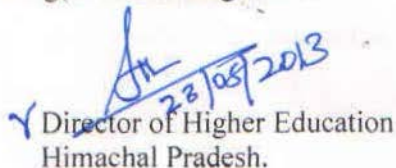 23/05/2013
Director of Higher Education
Himachal Pradesh.